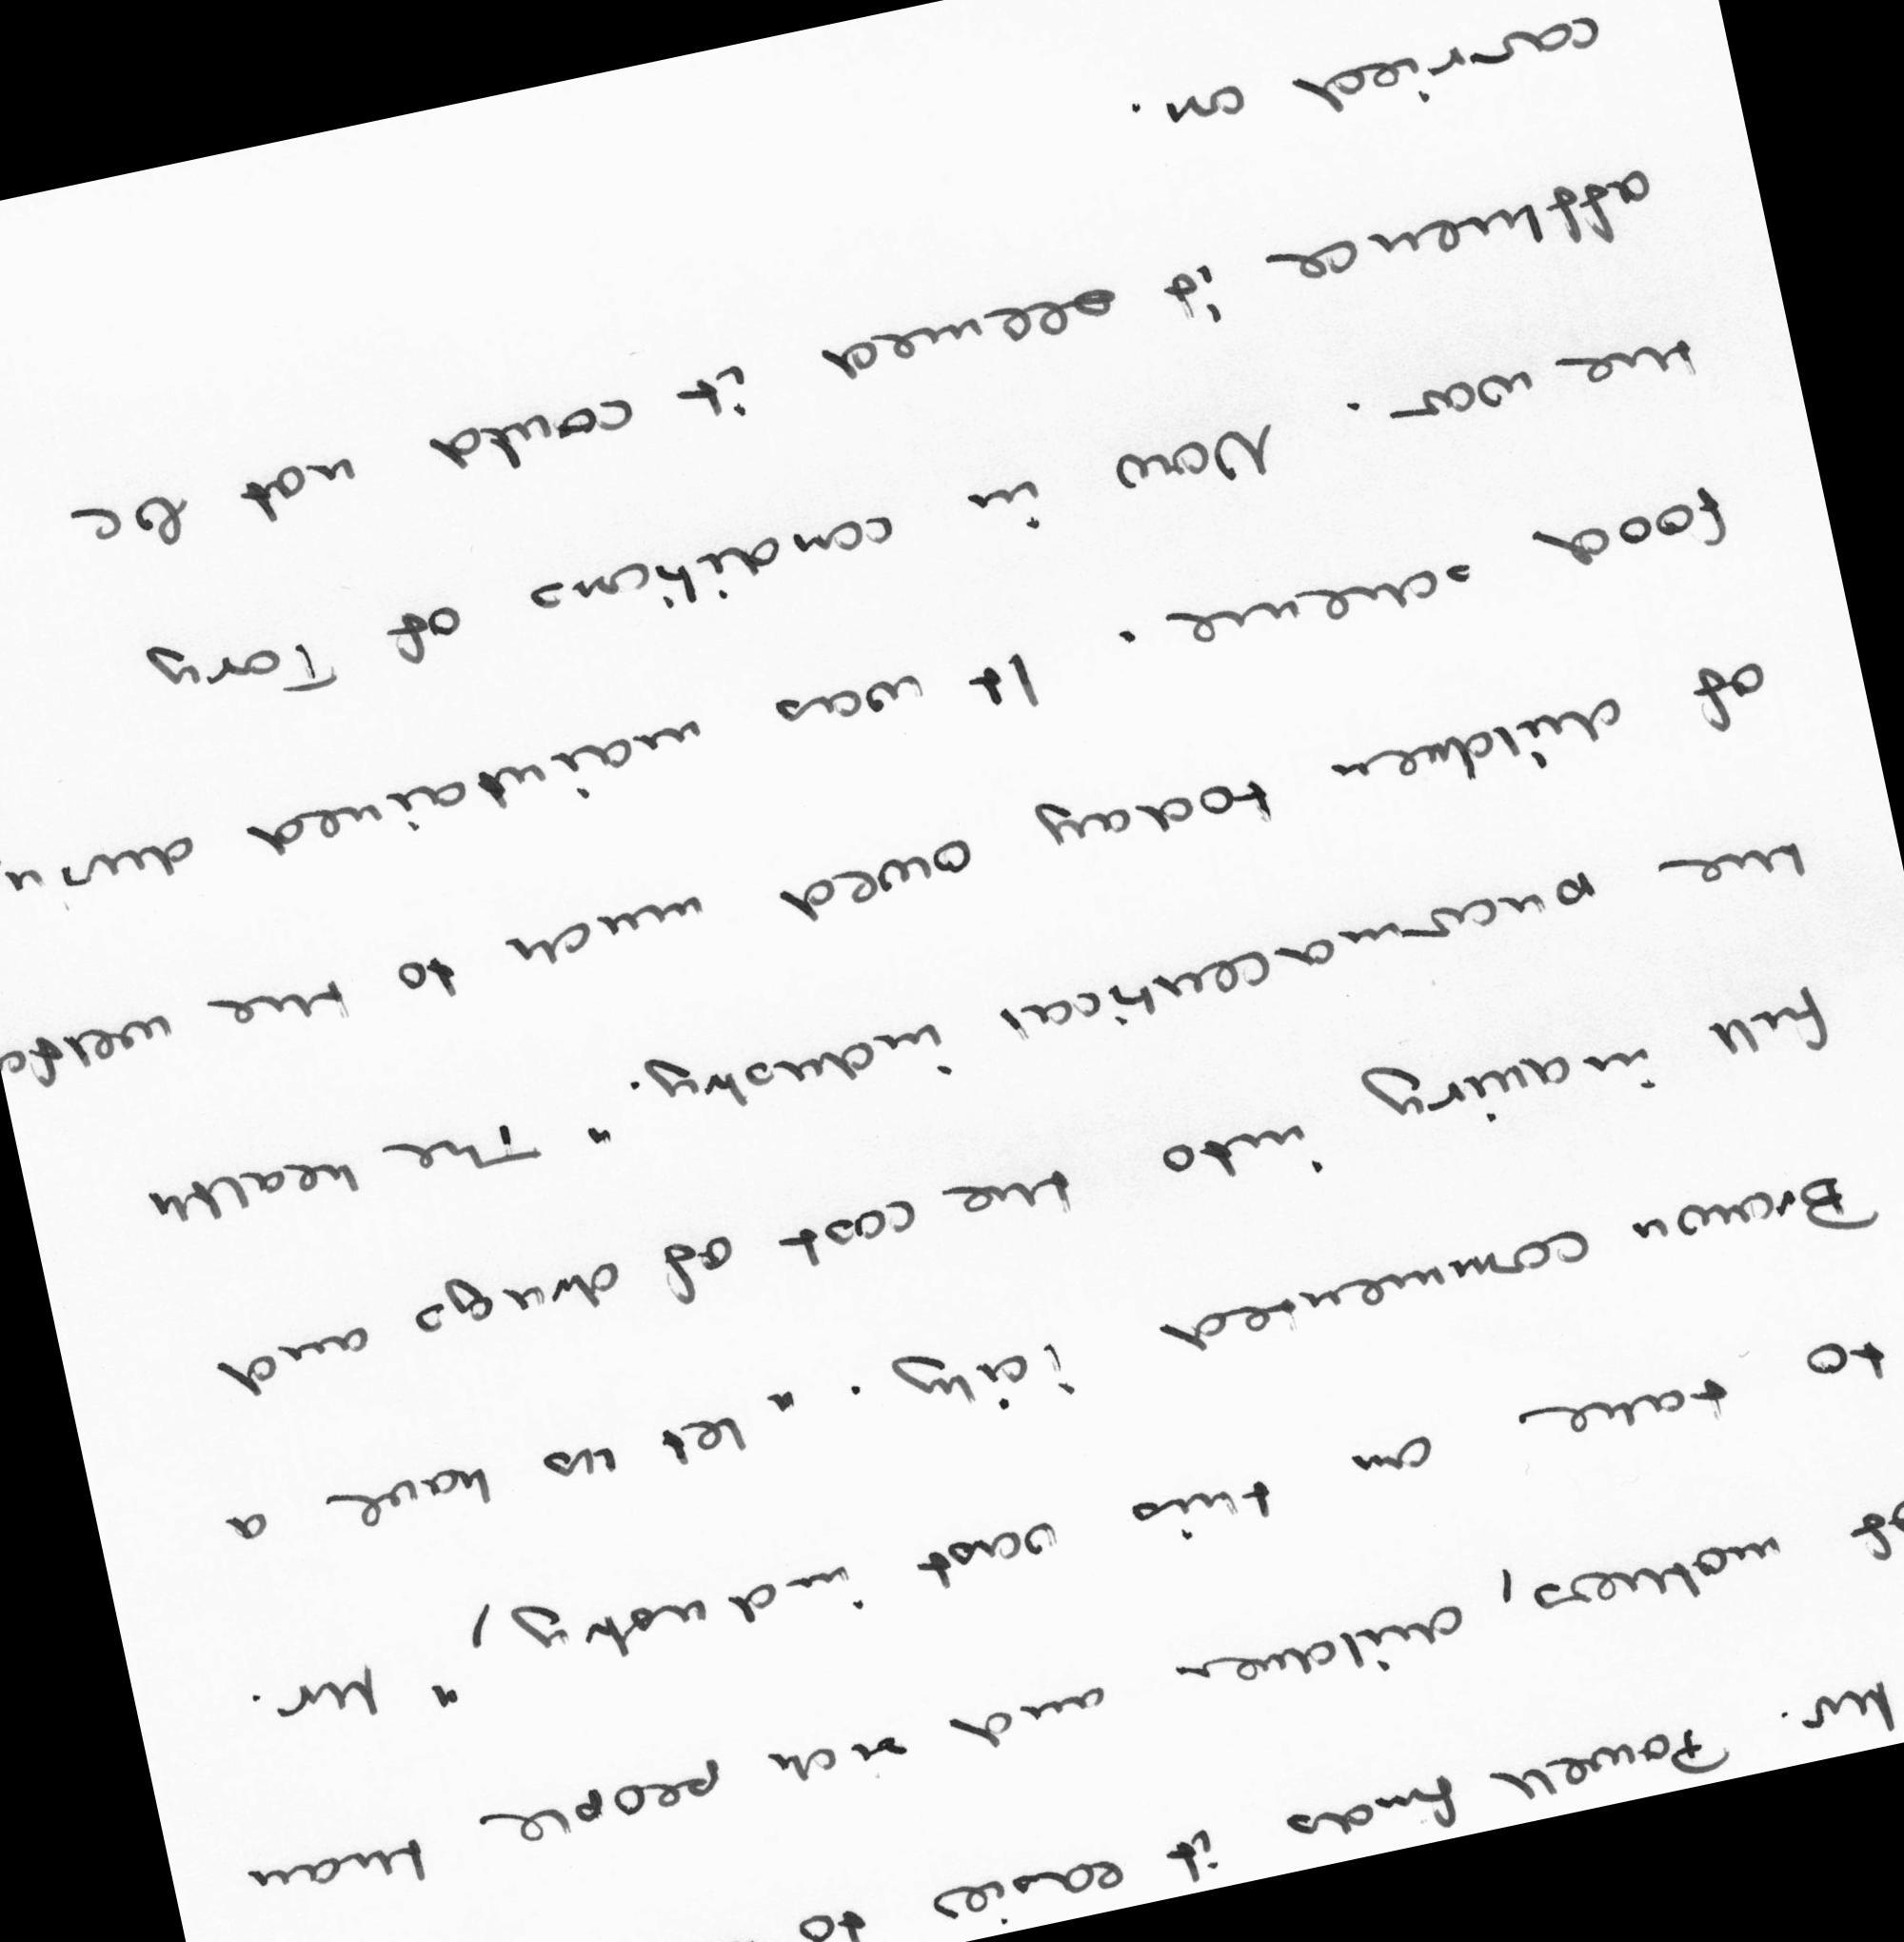 Mr. Powell finds it easier to
of mothers, children and sick people than
to take on this vast industry," Mr.
Brown commented icily. "Let us have a
full inquiry into the cost of drugs and
the pharmaceutical industry." The health
of children today owed much to the welfare
food scheme. It was maintained during
the war. Now in conditions of Tory
affluence it seemed it could not be
carried on.